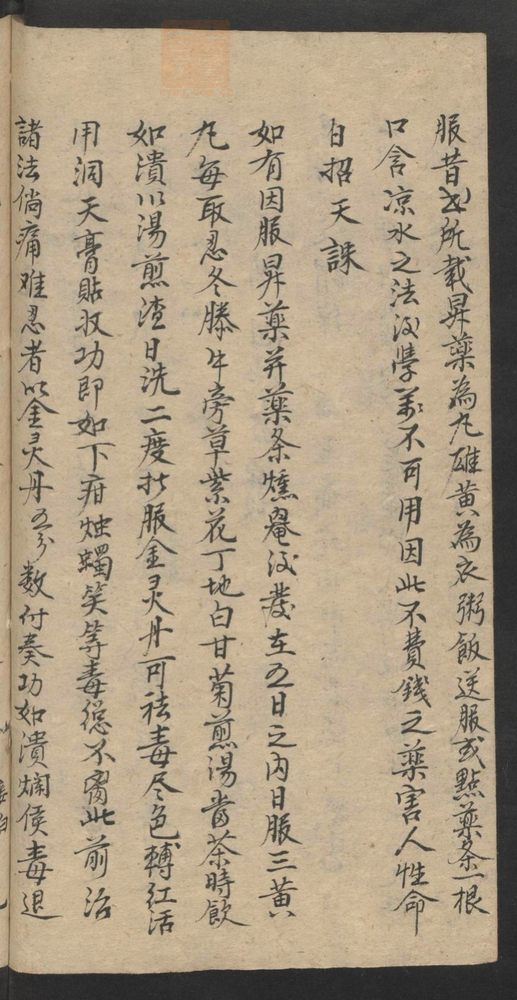 服昔書所載昇藥為丸雄黃為衣粥飯送服或點藥条一根
口含凉水之法汝學萬不可用因此不費錢之藥害人性命
自招天誅
如有因服昇藥并藥条燻罨汝發在五日之內日服三黃
丸每取忍冬滕牛旁草紫花丁地白甘菊煎湯當茶時飲
如潰以湯煎渣日洗二度抄服金灵丹可祛毒尽色轉紅活
用洞天膏貼収功即如下疳烛蠋等毒總不离此前治
諸法倘痛难忍者以金灵丹五分数付奏功如潰爛俟毒退